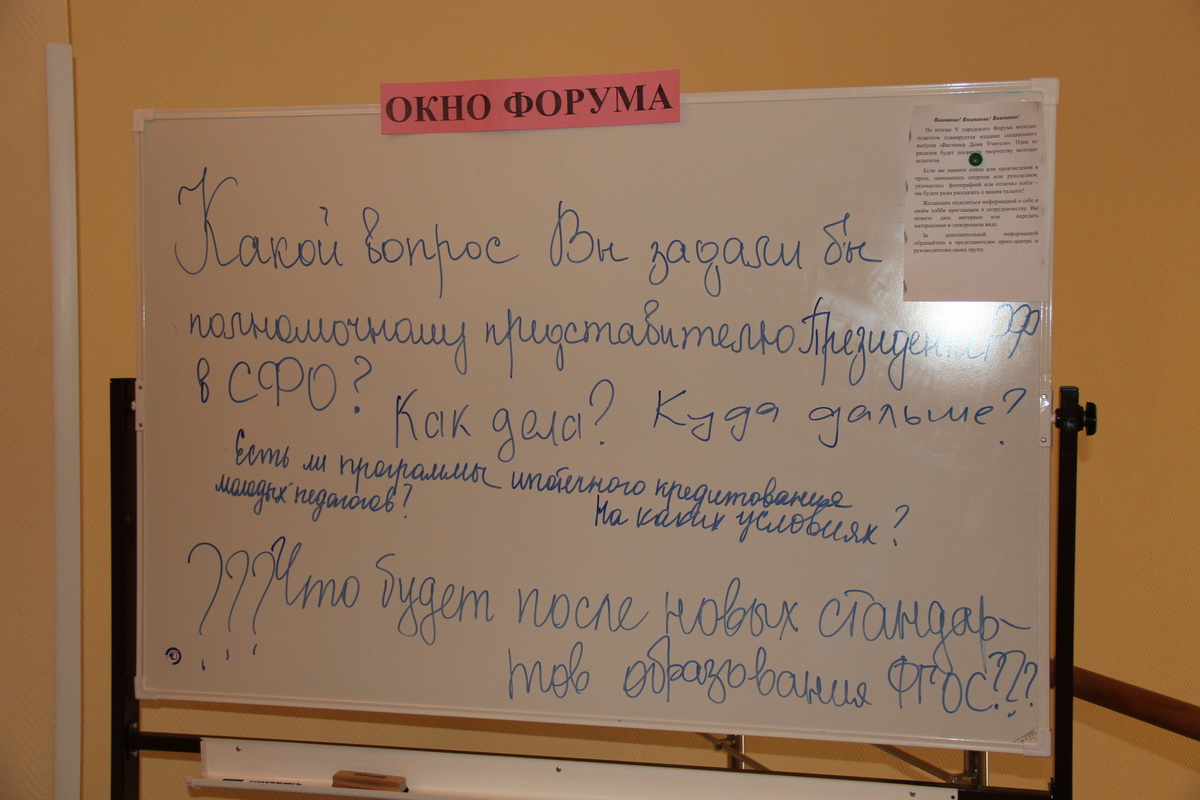 ОКНО ФОРУМА
Внимание! Внимание! Внимание!
По итогам V городского Форума молодых
педагогов планируется издание специального
выпуска «Вестника Дома Учителя». Один из
разделов будет посвящён творчеству молодых
педагогов.
Если вы пишете стихи или произведения в
прозе, занимаетесь спортом или рукоделием,
увлекаетесь фотографией или отлично поёте -
мы будем рады рассказать о вашем таланте!
Желающих поделиться информацией о себе и
своём хобби приглашаем к сотрудничеству. Вы
можете дать интервью или передать
материалы в электронном виде.
За дополнительной информацией
обращайтесь к представителям пресс-центра и
руководителям своих групп.
Какой вопрос Вы задали бы
полномочному представителю Президента РФ
в СФО?
Как дела? Куда дальше?
Есть ли программы ипотечного кредитования
молодых педагогов?
На каких условиях?
???Что будет после новых стандар-
тов образования ФГОС???